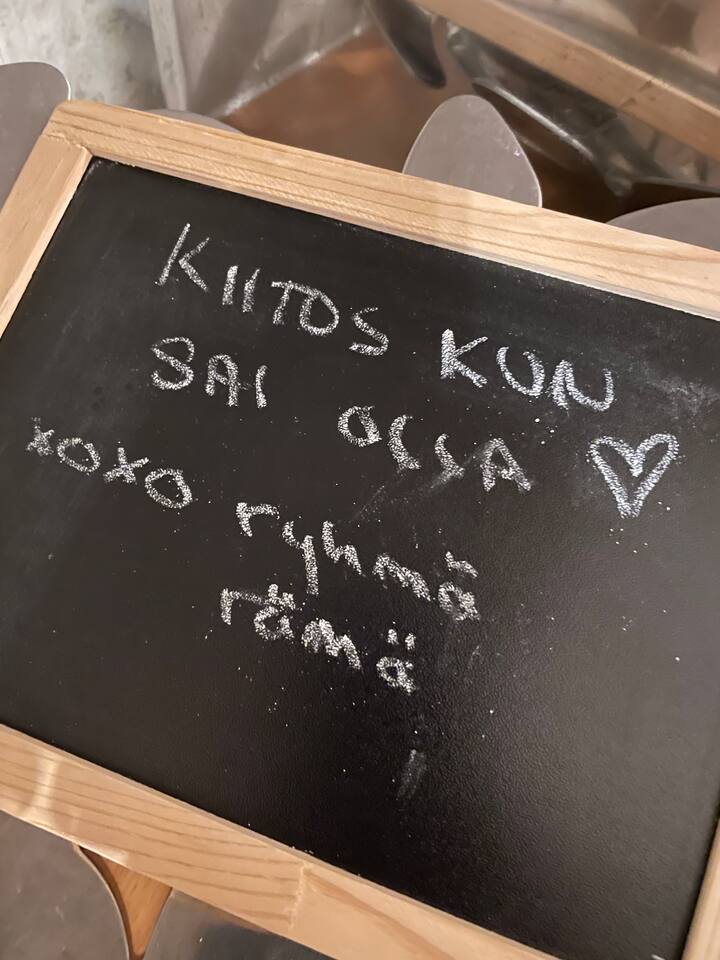 KIITOS KUN
SAI OLLA ♡
xoxo ryhmä
rämä